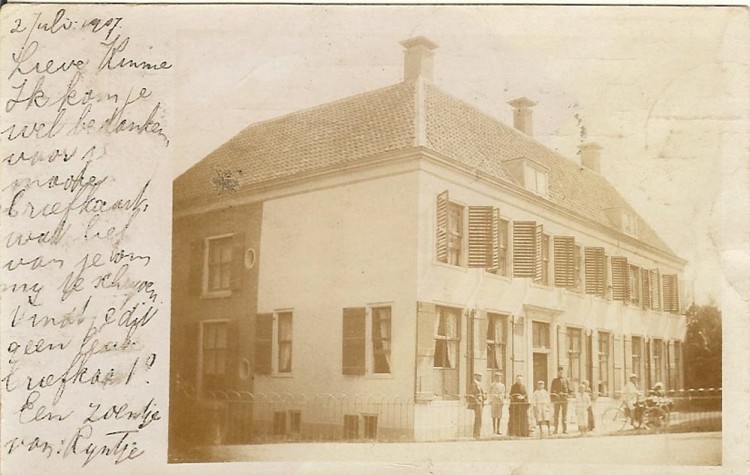 2 Juli. 1907.
Lieve Kinnie
Ik kom je
wel bedanken
voor je
mooie
briefkaart.
wat lief
van je om
mij te schrijven.
Vind je dit
geen leuke
briefkaart?
Een zoentje
van: Ryntje